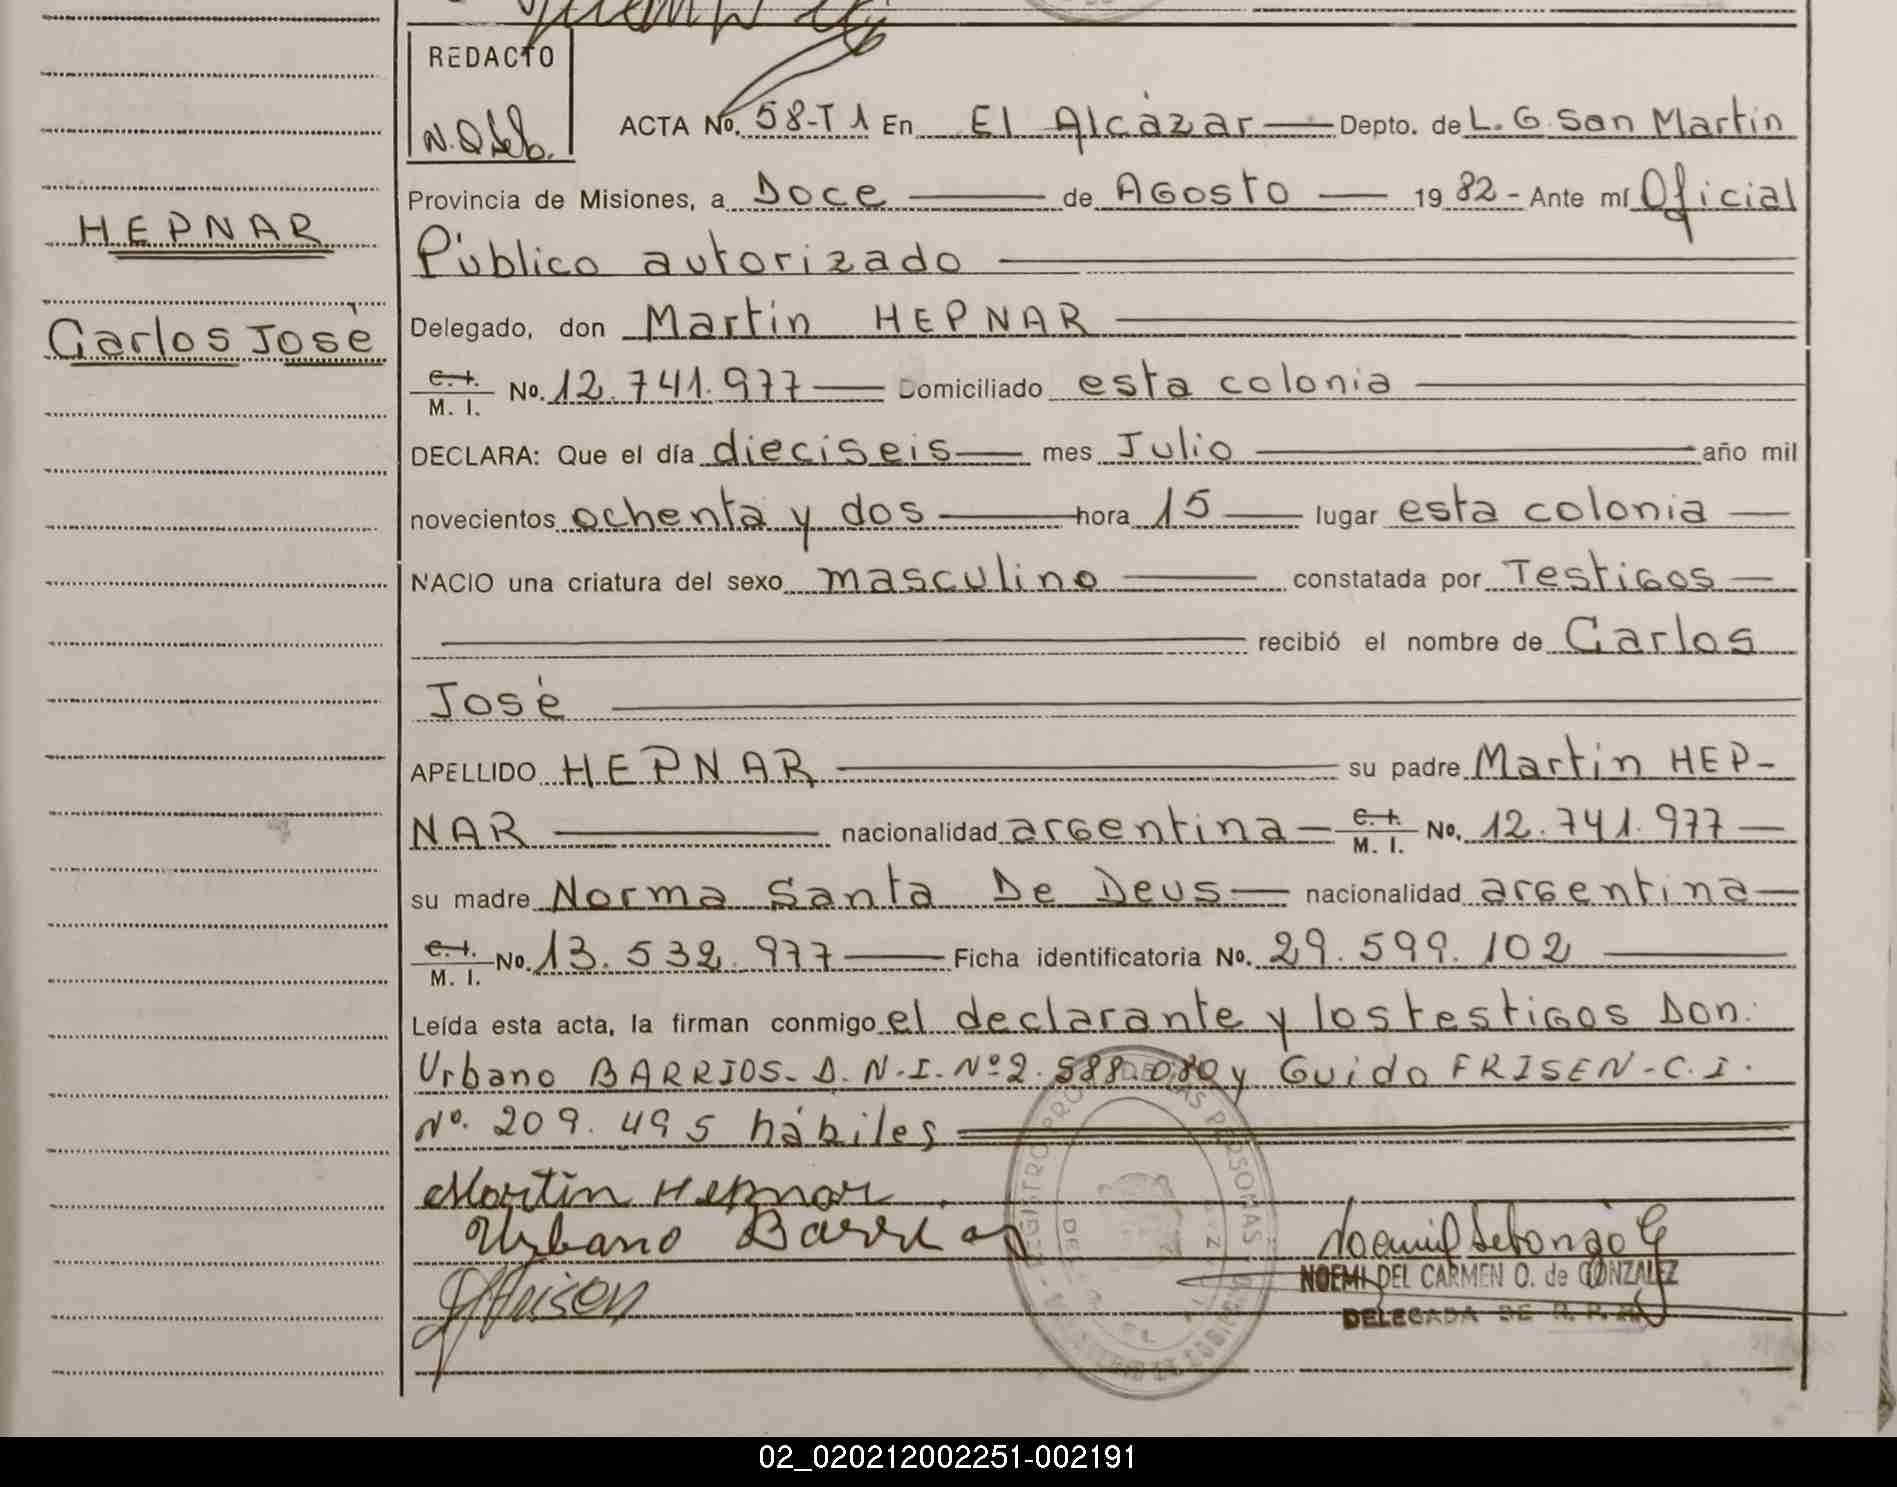 REDACTO
ACTA No. 58-T1 En El Alcázar Depto. de L. G. San Martín
Provincia de Misiones, a Doce de Agosto 1982- Ante mí Oficial
HEPNAR
Público autorizado
Carlos José
Delegado, don Martín HEPNAR
C. I.
M. I. No. 12.741.977 Domiciliado esta colonia
DECLARA: Que el día dieciseis mes Julio año mil
novecientos ochenta y dos hora 15 lugar esta colonia
NACIO una criatura del sexo masculino constatada por Testigos
recibió el nombre de Carlos
José
APELLIDO HEPNAR su padre Martín HEP-
NAR nacionalidad argentina C. I. M. I. No. 12.741.977
su madre Norma Santa De Deus nacionalidad argentina
C. I.
M. I. No. 13.532.977 Ficha identificatoria No. 29.599.102
Leída esta acta, la firman conmigo el declarante y los testigos Don:
Urbano BARRIOS- D.N.I. Nº 2.588.080 y Guido FRISEN-C.I.
Nº. 209.495 hábiles
Martín Hepnar
Urbano Barrios
NOEMI DEL CARMEN O. de GONZALEZ
DELEGADA DE R. P.
02_020212002251-002191